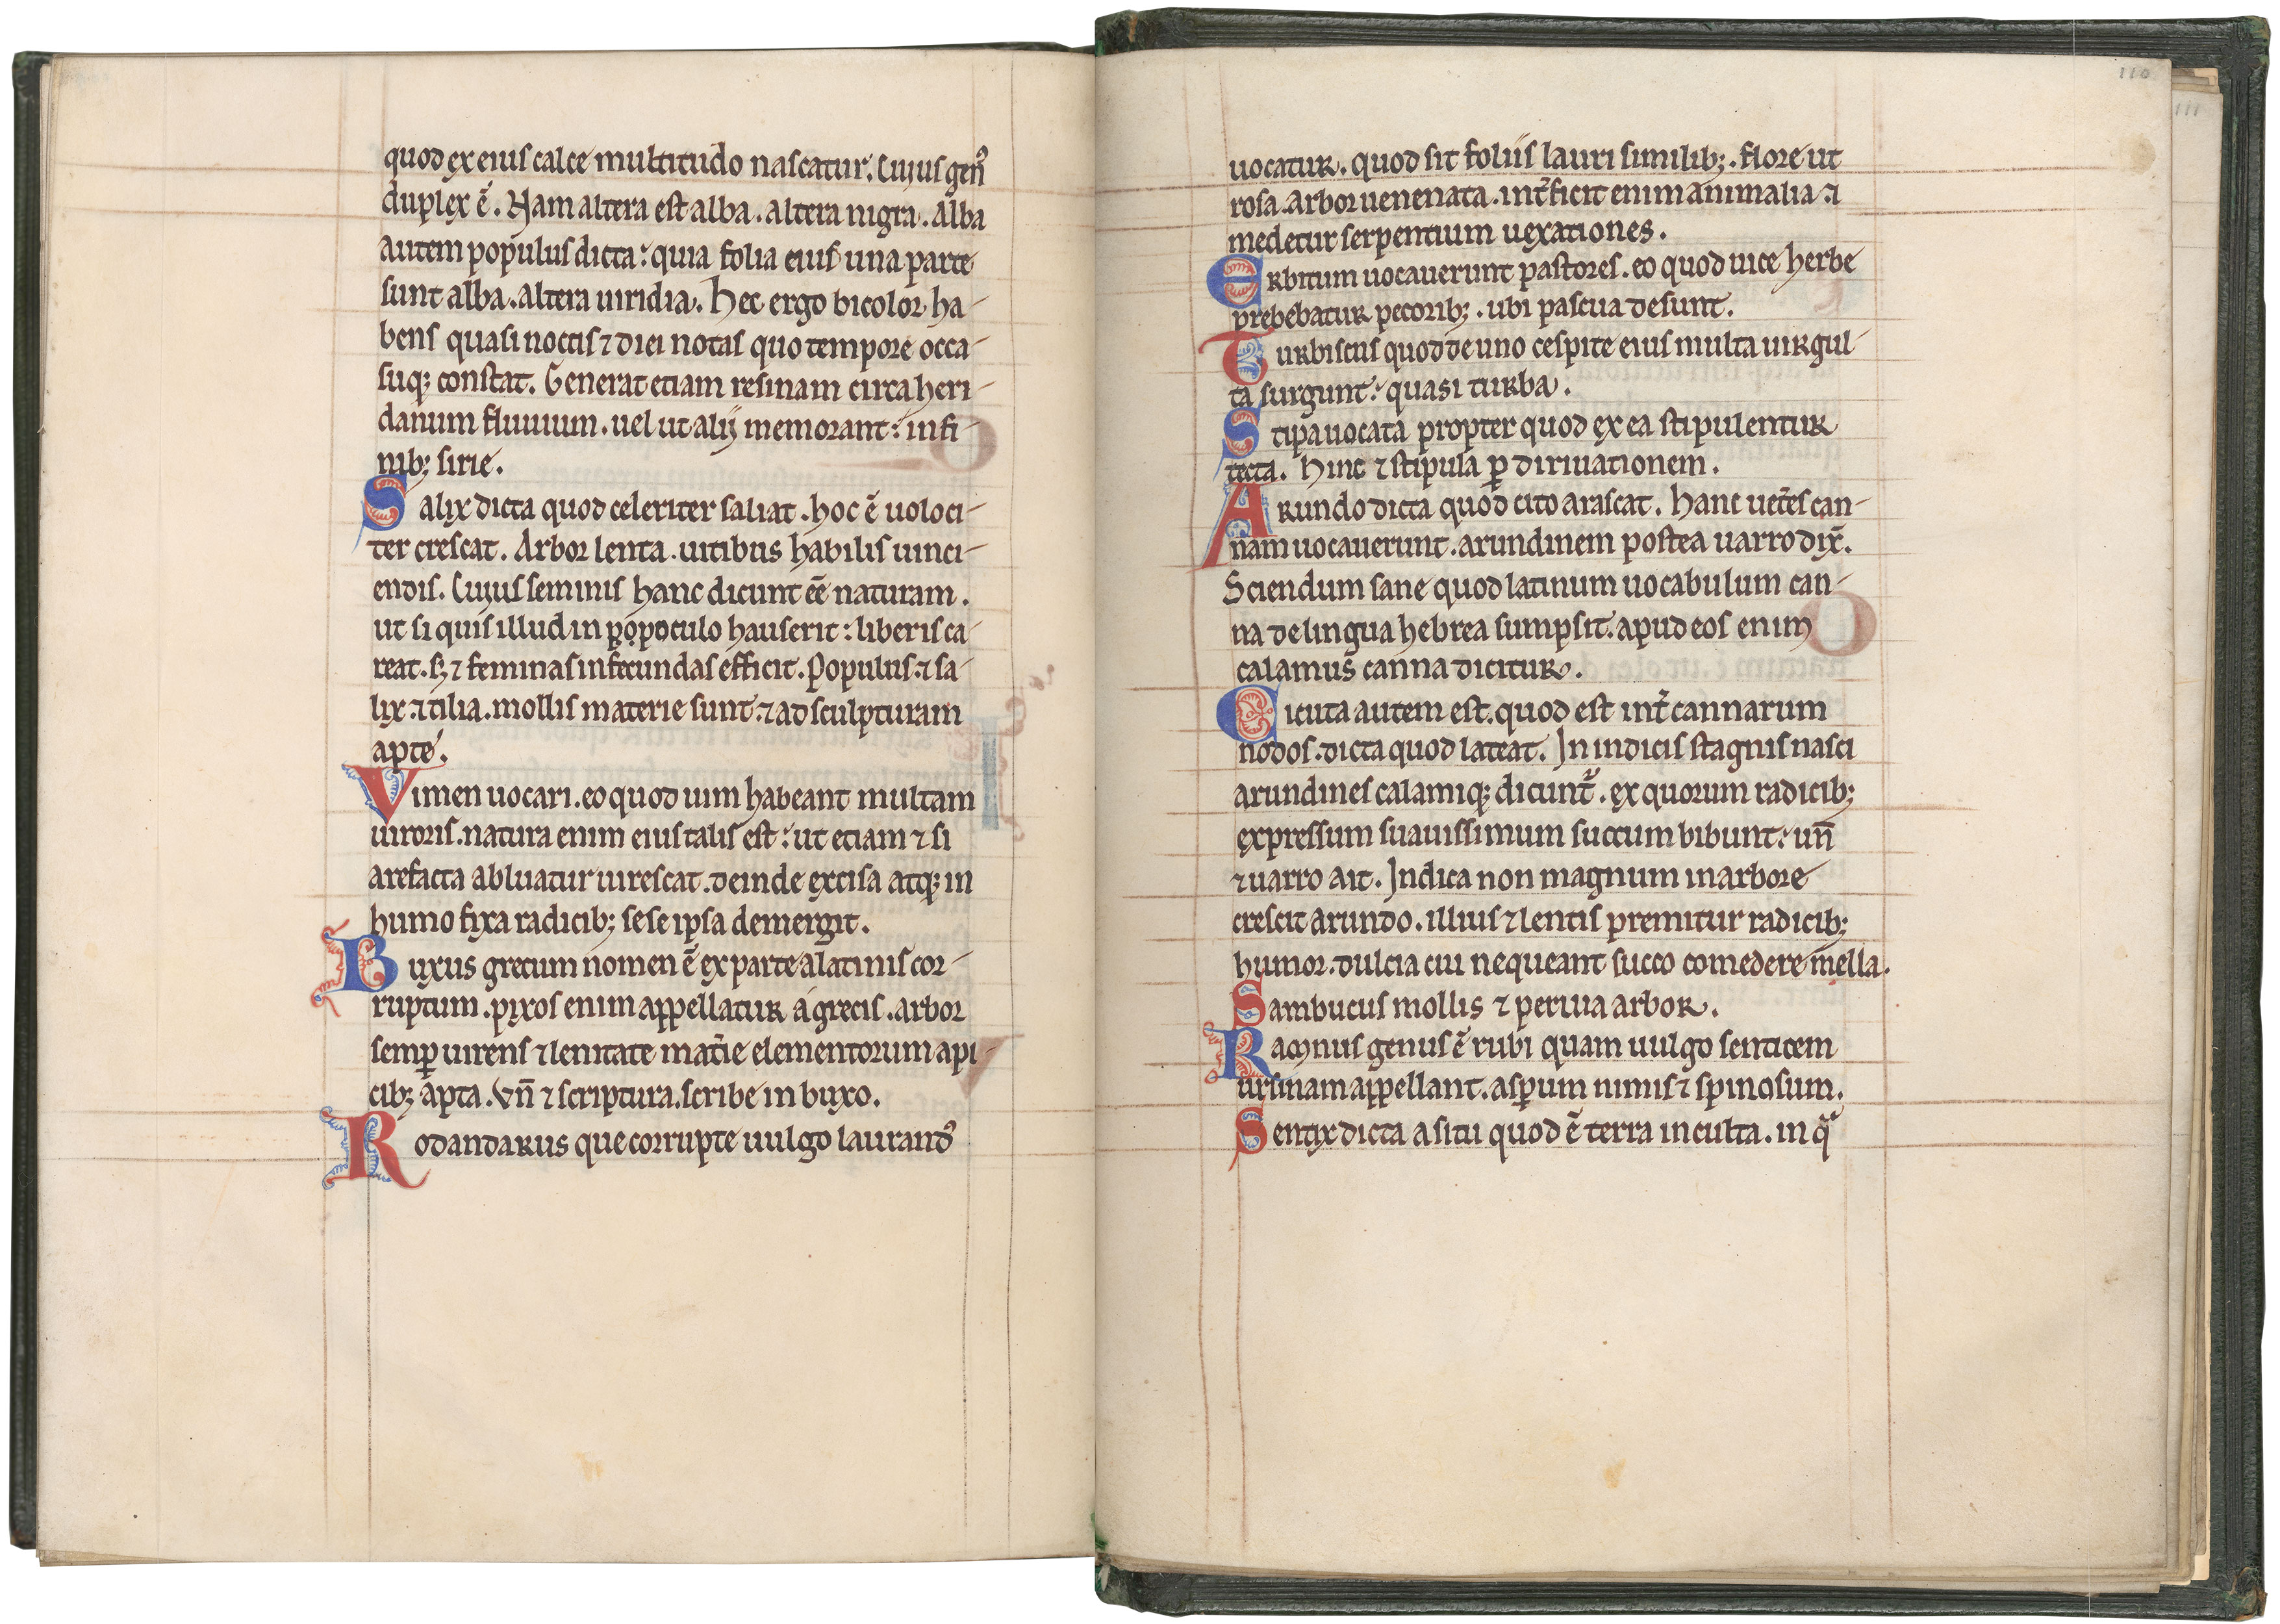 quod ex eius calce multitudo nascatur. Cuius gen᾽
duplex ē. Nam altera est alba. altera nigra. Alba
autem populus dicta: quia folia eius una parte
sunt alba. altera uiridia. Hec ergo bicolor ha-
bens quasi noctis ⁊ diei notas quo tempore occa-
suq; constat. Generat etiam resinam circa heri-
danum fluuium. uel ut alij memorant: in fi-
nib; sirie.
Salix dicta quod celeriter saliat. hoc ē uoloci-
ter crescat. Arbor lenta. uitibus habilis uinci-
endis. Cuius seminis hanc dicunt eē naturam.
ut si quis illud in popoculo hauserit: liberis ca-
reat. s; ⁊ feminas infecundas efficit. Populus. ⁊ sa-
lix. ⁊ tilia. mollis materie sunt. ⁊ ad sculpturam
apte.
Vimen uocari. eo quod uim habeant multam
uiroris. natura enim eius talis est: ut etiam ⁊ si
arefacta abluatur uirescat. deinde excisa atq; in
humo fixa radicib; sese ipsa demergit.
Buxus grecum nomen ē ex parte a latinis cor-
ruptum. pixos enim appellatur a grecis. arbor
semꝑ uirens ⁊ lenitate mat̄ie elementorum api-
cib; apta. Vn̄ ⁊ scriptura. scribe in buxo.
Rodandarus que corrupte uulgo laurand᾽
uocatur. quod sit foliis lauri similib;. flore ut
rosa. Arbor uenenata. int̄ficit enim animalia. ⁊
medetur serpentium uexationes.
Erbitum uocauerunt pastores. eo quod uice herbe
prebebatur pecorib;. ubi pascua desunt.
Turbiscus quod de uno cespite eius multa uirgul-
ta surgunt: quasi turba.
Stipa uocata propter quod ex ea stipulentur
tecta. Hinc ⁊ stipula ꝑ diriuationem.
Arundo dicta quod cito arascat. Hanc uet̄es can-
nam uocauerunt. arundinem postea uarro dix̄.
Sciendum sane quod latinum uocabulum can-
na de lingua hebrea sumpsit. apud eos enim
calamus canna dicitur.
Cicuta autem est. quod est int̄ cannarum
nodos. dicta quod lateat. In indicis stagnis nasci
arundines calamiq; dicunt̄. ex quorum radicib;
expressum suauissimum succum bibunt: un̄
⁊ uarro ait. Indica non magnum in arbore
crescit arundo. illius ⁊ lentis premitur radicib;
humor. dulcia cui nequeant succo comedere mella.
Sambucus mollis ⁊ peruia arbor.
Ramnus genus ē rubi quam uulgo senticem
ursinam appellant. asꝑum nimis ⁊ spinosum.
Sentix dicta a situ quod ē terra inculta. in qᵃ
110
111